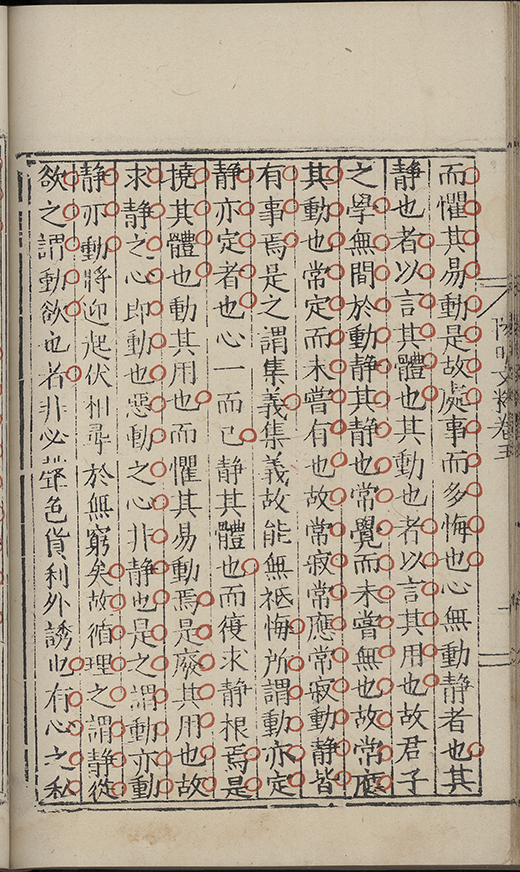 而懼其易動是故處事而多悔也心無動靜者也其
靜也者以言其體也其動也者以言其用也故君子
之學無間於動靜其靜也常覺而未嘗無也故常應
其動也常定而未嘗有也故常寂常應常寂動靜皆
有事焉是之謂集義集義故能無祗悔所謂動亦定
靜亦定者也心一而已靜其體也而復求靜根焉是
撓其體也動其用也而懼其易動焉是廢其用也故
求靜之心即動也惡動之心非靜也是之謂動亦動
靜亦動將迎起伏相尋於無窮矣故循理之謂靜從
欲之謂動欲也者非必聲色貨利外誘也有心之私
陽明文粹卷五